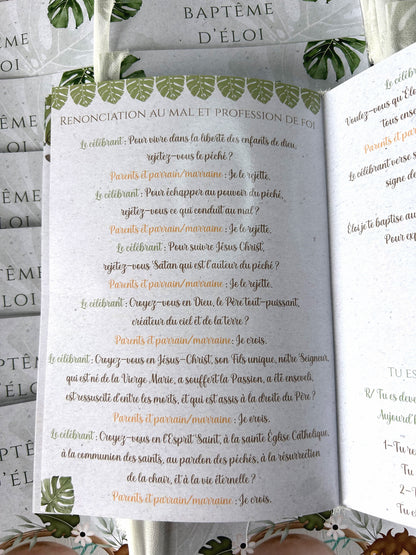 BAPTÊME
D'ÉLOI
BAPTÊME
D'ÉLOI
BAPTÊME
ÉLOI
BAPTÊME
ÉLOI
BAPTÊME
ÉLOI
BAPTÊME
D'ÉLOI
BAPTÊME
D'ÉLOI
RENONCIATION AU MAL ET PROFESSION DE FOI
Le célébrant : Pour vivre dans la liberté des enfants de dieu,
rejetez-vous le péché ?
Parents et parrain/marraine : Je le rejette.
Le célébrant : Pour échapper au pouvoir du péché,
rejetez-vous ce qui conduit au mal ?
Parents et parrain/marraine : Je le rejette.
Le célébrant : Pour suivre Jésus Christ,
rejetez-vous Satan qui est l'auteur du péché ?
Parents et parrain/marraine : Je le rejette.
Le célébrant : Croyez-vous en Dieu, le Père tout-puissant,
créateur du ciel et de la terre ?
Parents et parrain/marraine : Je crois.
Le célébrant : Croyez-vous en Jésus-Christ, son Fils unique, notre Seigneur,
qui est né de la Vierge Marie, a souffert la Passion, a été enseveli,
est ressuscité d'entre les morts, et qui est assis à la droite du Père ?
Parents et parrain/marraine : Je crois.
Le célébrant : Croyez-vous en l'Esprit Saint, à la sainte Église Catholique,
à la communion des saints, au pardon des péchés, à la résurrection
de la chair, et à la vie éternelle ?
Parents et parrain/marraine : Je crois.
Le cél
Voulez-vous qu'Élo
Tous ensem
Parents et par
Le célébrant verse
signe de
Éloi je te baptise au
Pour exp
TU ES
R/ Tu es deve
Aujourd'
1-Tu re
Tu es
2-Tu
Tu